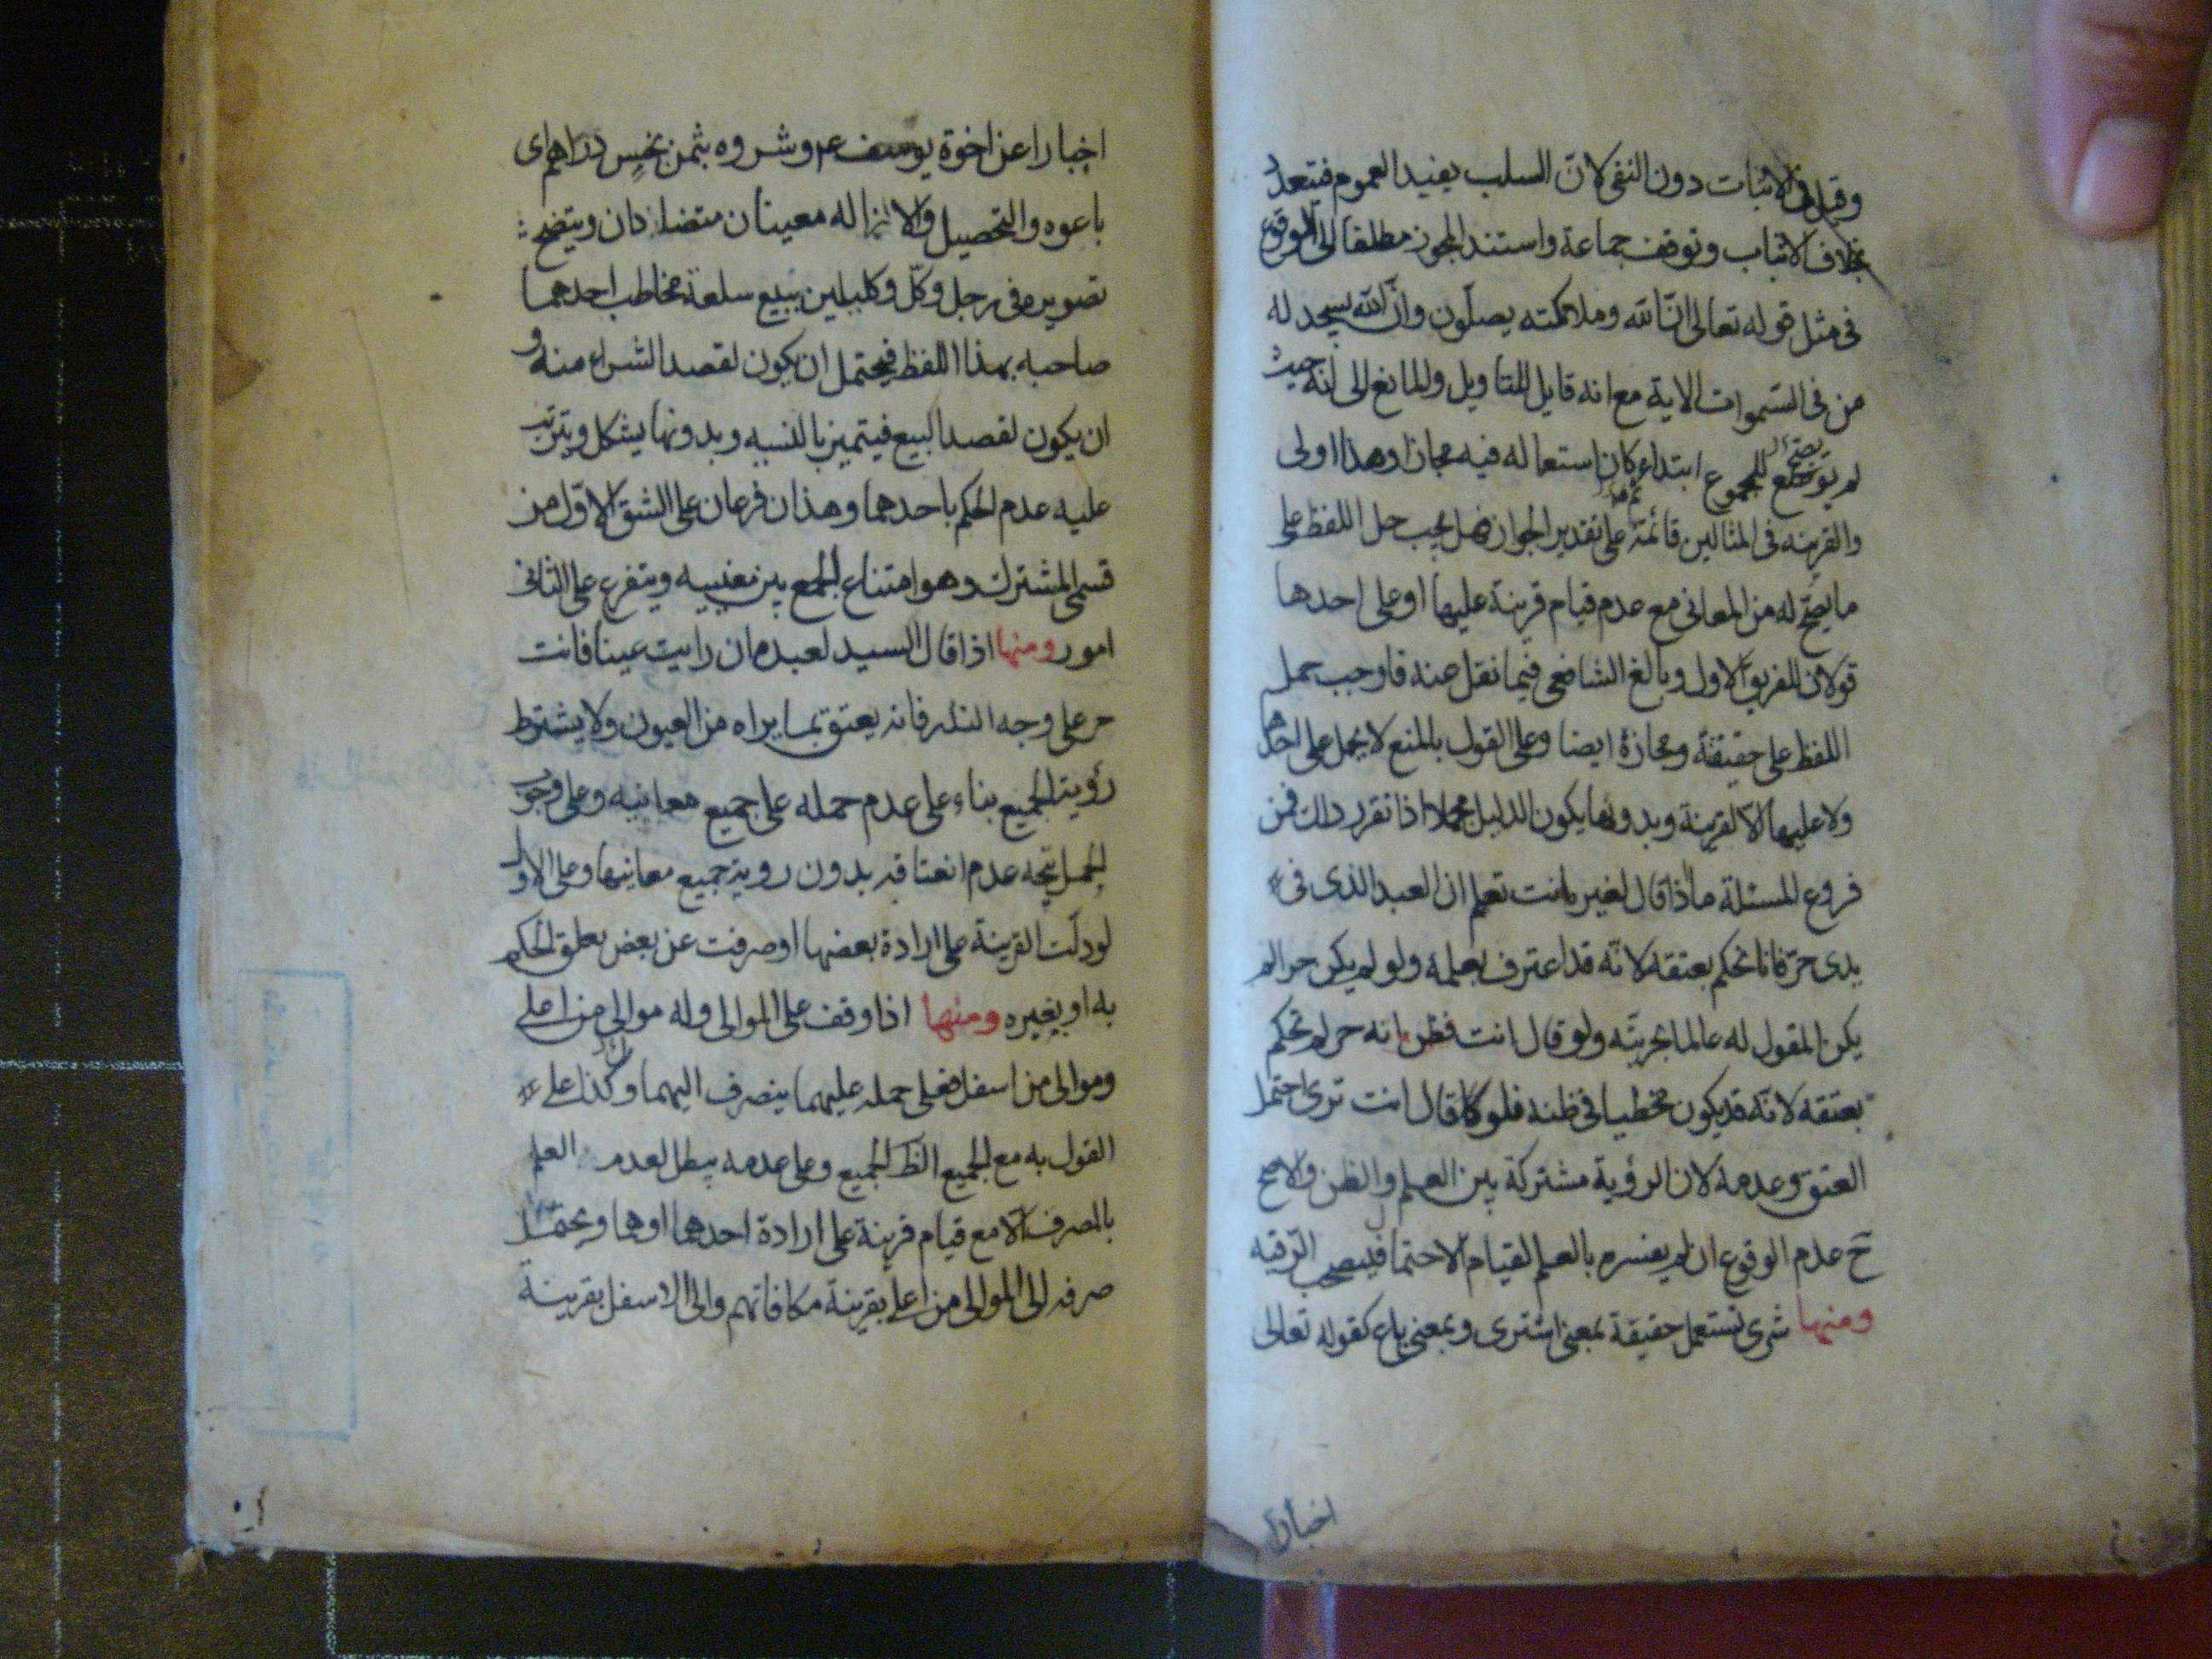 وقيل في الاثبات دون النفى لانّ السلب يفيد العموم فيتعدد
بخلاف الاثبات وتوقف جماعة واستند المجوز مطلقا الى الوقوع
فى مثل قوله تعالى انّ الله وملائكته يصلّون وانّ الله يسجد له
من فى السّموات الاية مع انه قابل للتاويل والمانع الى انه حيث
لم يوضع للمجموع ابتداء كان استعماله فيه مجازا وهذا اولى
والقرينه فى المثالين قائمة ثم على تقدير الجواز فهل يجب حمل اللفظ على
ما يصحّ له من المعانى مع عدم قيام قرينة عليها او على احدها
قولان للفريق الاول وبالغ الشافعى فيما نقل عنه فاوجب حمل
اللفظ على حقيقته ومجازه ايضا وعلى القول بالمنع لا يحمل على احدها
ولا عليها الّا لقرينة وبدونها يكون الدليل مجملا اذا تقرر ذلك فمن
فروع المسئلة ما اذا قال لغيره انت تعلم ان العبد الذى فى
يدى حرّ فانا نحكم بعتقه لانّه قد اعترف بعلمه ولو لم يكن حرا لم
يكن المقول له عالما بحريّته ولو قال انت تظن انه حر لم نحكم
بعتقه لانّه قد يكون مخطيا فى ظنه فلو قال انت ترى احتمل
العتق وعدمه لان الرؤية مشتركة بين العلم والظن والاصح
ح عدم الوقوع ان لم يفسره بالعلم لقيام الاحتمال فيستصحب الرّقيه
ومنها شرى تستعمل حقيقة بمعنى اشترى وبمعنى باع كقوله تعالى
اخبارا
اخبارا عن اخوة يوسف عم وشروه بثمن بخس دراهم اى
باعوه والتحصيل والازاله معينان متضادان ويتضح
تصويره فى رجل وكّل وكليلين ببيع سلعة مخاطب احدهما
صاحبه بهذا اللفظ فيحتمل ان يكون لقصد الشراء منه و
ان يكون لقصد البيع فيتميز بالنسيه وبدونها يشكل ويترتب
عليه عدم الحكم باحدهما وهذان فرعان على الشق الاوّل من
قسمى المشترك وهو امتناع الجمع بين معنييه ويتفرع على الثانى
امور ومنها اذا قال السيد لعبده ان رايت عينا فانت
حر على وجه النذر فانه يعتق بما يراه من العيون ولا يشترط
رؤية الجميع بناء على عدم حمله على جميع معانيه وعلى وجوب
الحمل يتجه عدم انعتاقه بدون روية جميع معانيها وعلى الاول
لو دلّت القرينة على ارادة بعضها او صرفت عن بعض تعلق الحكم
به او بغيره ومنها اذا وقف على الموالى وله موالى من اعلى
وموالى من اسفل فعلى حمله عليهما ينصرف اليهما وكذا على
القول به مع الجميع الظ الجميع وعلى عدمه يبطل لعدم العلم
بالمصرف الّا مع قيام قرينة على ارادة احدهما او هما ويحتمل
صرفه الى الموالى من اعلى بقرينة مكافاتهم والى الاسفل بقرينة